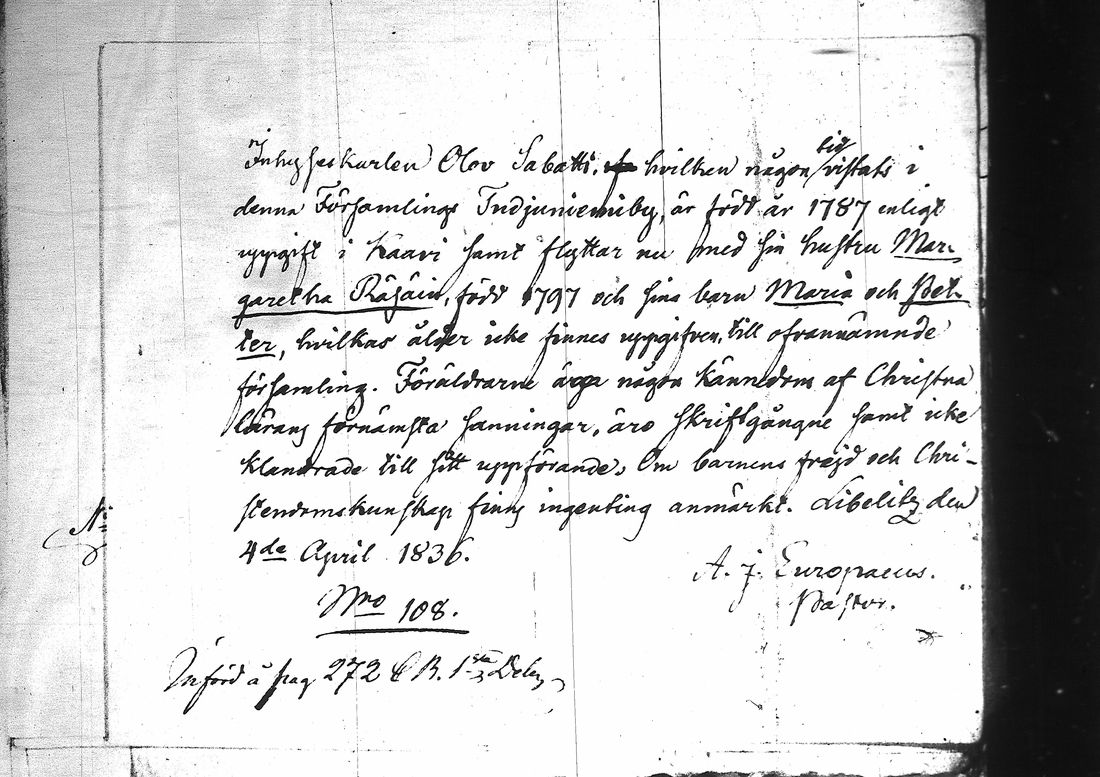 Inhyseskarlen Olov Sabatti, hvilken någon tid vistats i
denna Församlings Tudjuniemiby, är född år 1787 enligt
uppgift i Kaavi samt flyttar nu med sin hustru Mar-
garetha Räsäin, född 1797 och sina barn Maria och Pet-
ter, hvilkas ålder icke finnes uppgifven, till ofvannämnde
församling. Föräldrarne äga någon kännedom af Christna
lärans förnämsta sanningar, äro skriftgångne samt icke
klandrade till sitt uppförande. Om barnens frejd och Chri-
stendomskunskap finns ingenting anmärkt. Libelitz den
4de April 1836.
A. J. Europaeus.
Pastor.
Nro 108.
Införd å pag 272 C B. 1sta Delen